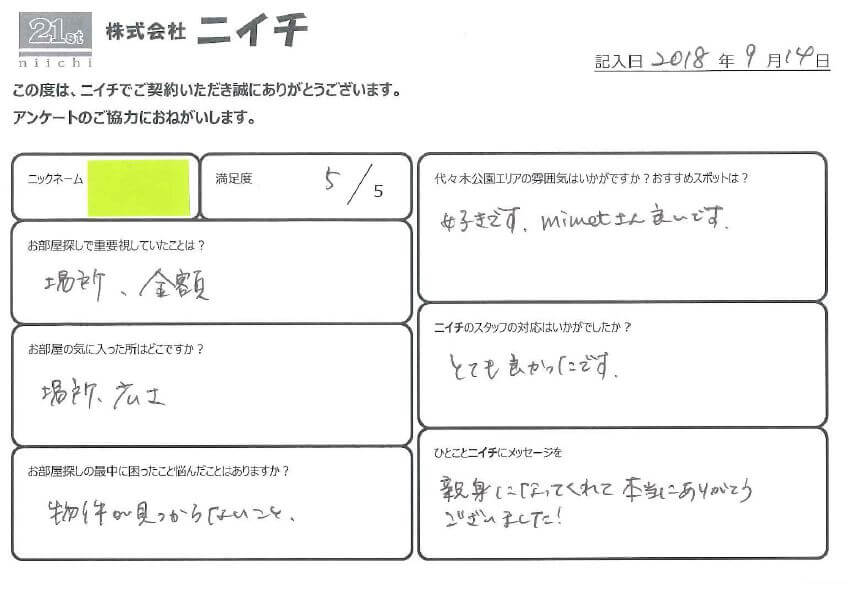 21st
niichi
株式会社 ニイチ
記入日 2018 年 9 月 14 日
この度は、ニイチでご契約いただき誠にありがとうございます。
アンケートのご協力におねがいします。
ニックネーム
満足度 5/5
お部屋探しで重要視していたことは？
場所、金額
お部屋の気に入った所はどこですか？
場所、広さ
お部屋探しの最中に困ったこと悩んだことはありますか？
物件が見つからないこと、
代々木公園エリアの雰囲気はいかがですか？おすすめスポットは？
好きです、mimetさん良いです。
ニイチのスタッフの対応はいかがでしたか？
とても良かったです。
ひとことニイチにメッセージを
親身になってくれて本当にありがとう
ございました！